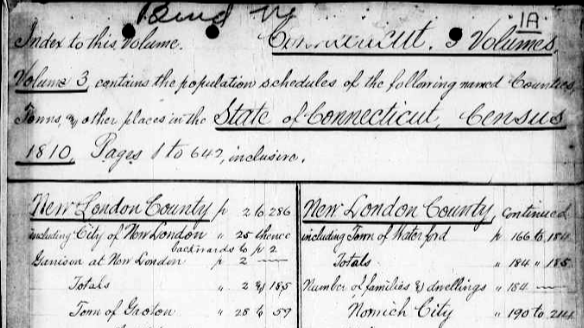 1A
Index to this Volume. Connecticut. 3 Volumes.
Volume 3, contains the population schedules of the following named Counties,
Towns, & other places in the State of Connecticut, Census
1810, Pages 1 to 642, inclusive.
New London County p 2 to 286
including City of New London " 25 thence
backwards to p 2
Garrison at New London p 2
Totals " 2 & 185
Town of Groton " 28 to 59
New London County, Continued
including Town of Waterford p 166 to 184
Totals " 184 " 185
Number of families & dwellings " 184
Norwich City " 190 to